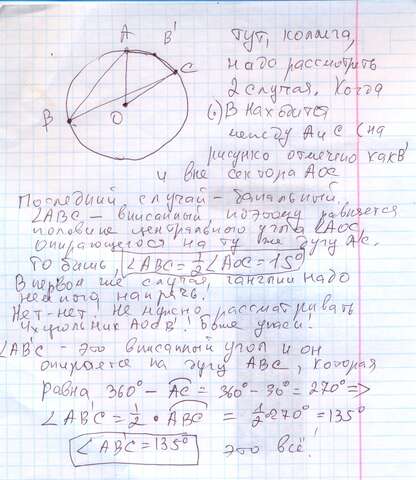 A
B'
C
B
O
Тут, коллега,
надо рассмотреть
2 случая. Когда
(·) B находится
между A и C (на
рисунке отмечено как B'
и вне сектора AOC
Последний случай - банальный.
∠ABC - вписанный, поэтому равняется
половине центрального угла ∠AOC,
опирающегося на ту же дугу AC.
То бишь, ∠ABC = 1/2 ∠AOC = 15°
В первом же случае, ганглии надо
немного напрячь.
Нет-нет. Не нужно рассматривать
4хугольник AOCB'! Боже упаси!
∠AB'C - это вписанный угол и он
опирается на дугу ABC, которая
равна 360° - AC = 360° - 30° = 270° =>
∠AB'C = 1/2 · ABC = 1/2 · 270° = 135°
∠AB'C = 135° это всё!